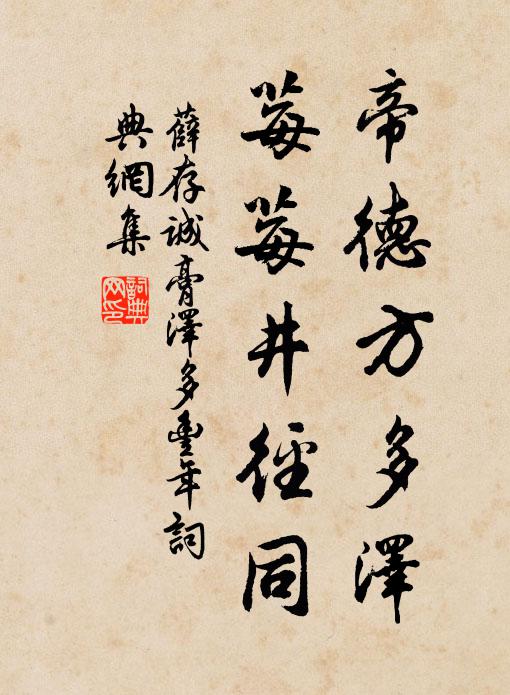 帝德方多澤
莓莓井徑同
薛存誠膏澤多豐年詞
典網集
詞典網印